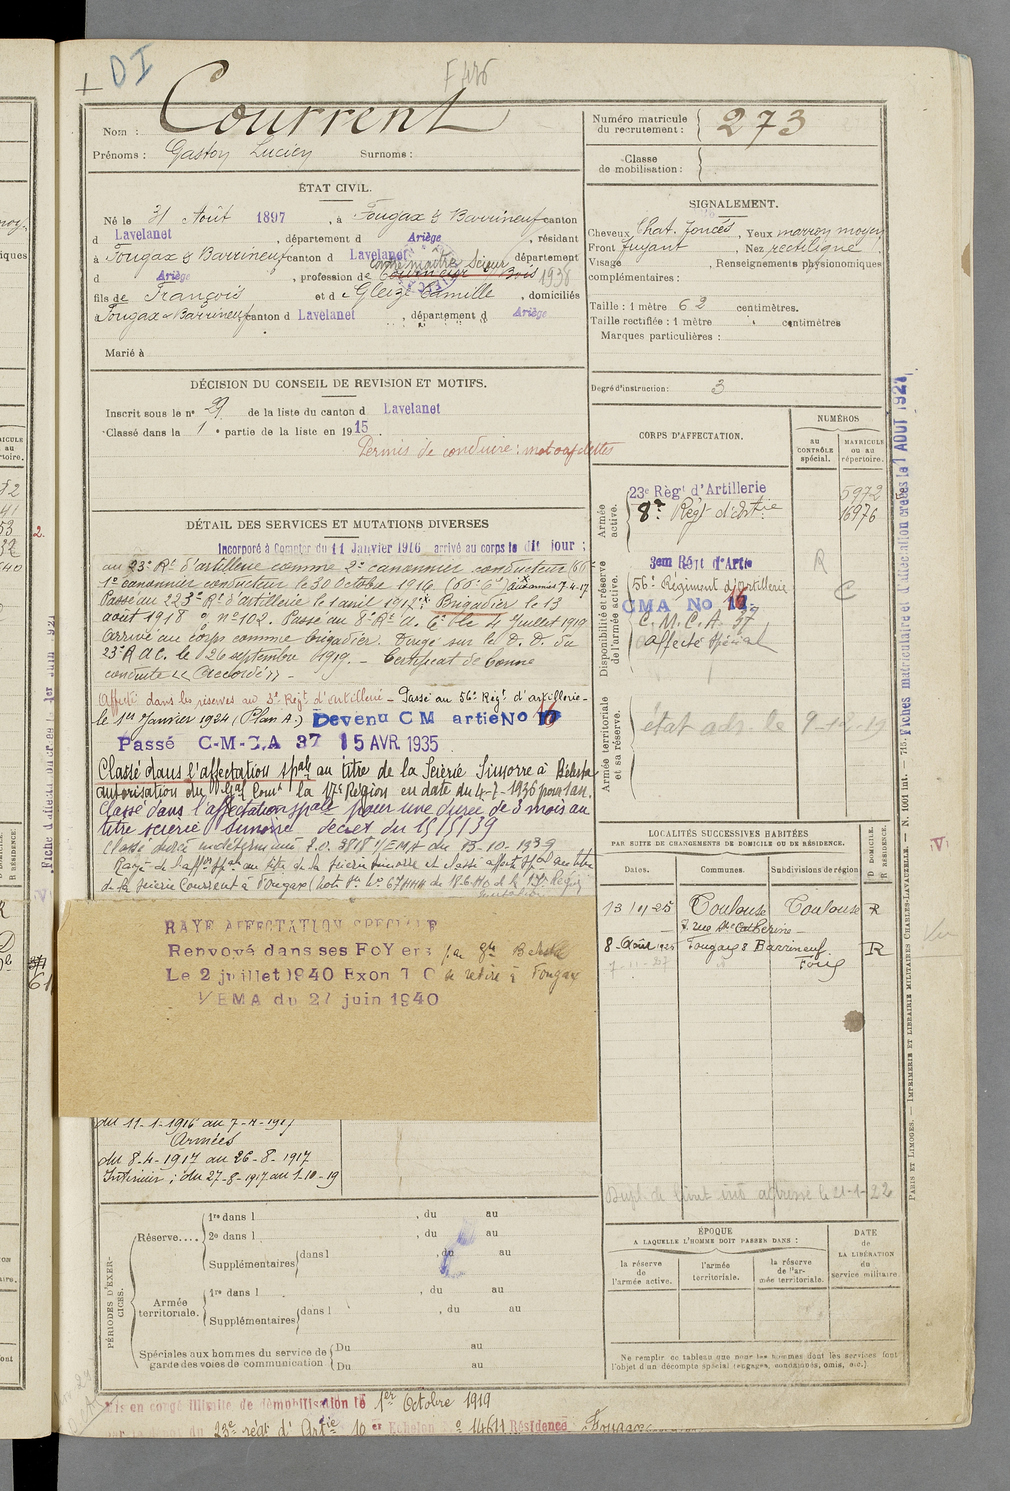 DI
F 436
Nom : Courrent
Prénoms : Gaston Lucien Surnoms :
Numéro matricule du recrutement : 273
Classe de mobilisation :
ÉTAT CIVIL.
Né le 31 Août 1897, à Fougax & Barrineuf canton
d Lavelanet, département d Ariège, résidant
à Fougax & Barrineuf canton d Lavelanet département
d Ariège, profession de Contre maître Scieur 1938
fils de François et de Gleize Camille, domiciliés
à Fougax & Barrineuf canton d Lavelanet, département d Ariège
Marié à
SIGNALEMENT.
Cheveux Chat. foncés, Yeux marron moyen
Front fuyant, Nez rectiligne
Visage , Renseignements physionomiques
complémentaires :
Taille : 1 mètre 62 centimètres.
Taille rectifiée : 1 mètre centimètres
Marques particulières :
Degré d'instruction : 3
DÉCISION DU CONSEIL DE REVISION ET MOTIFS.
Inscrit sous le n° 29 de la liste du canton d Lavelanet
Classé dans la 1e partie de la liste en 1915.
Permis de conduire : motocyclettes
CORPS D'AFFECTATION.
NUMÉROS
au CONTRÔLE spécial.
MATRICULE ou au répertoire.
Armée active.
23e Règt d'Artillerie 5972
8e Régt d'Artie 16976
Disponibilité et réserve de l'armée active.
3em Régt d'Artie R
56e Régiment d'artillerie C
CMA No 16
C.M.C.A. 37
affecté spécial
Armée territoriale et sa réserve.
état adr le 9-12-19
DÉTAIL DES SERVICES ET MUTATIONS DIVERSES
Incorporé à Compter du 11 Janvier 1916 arrivé au corps le dit jour ;
au 23e Rt d'artillerie comme 2e canonnier conducteur
1er canonnier conducteur le 30 Octobre 1916. aux armées 7-4-17
Passé au 223e Rt d'artillerie le 1 avril 1917. Brigadier le 13
août 1918 n° 102. Passé au 8e Rt d. C. le 4 Juillet 1919
arrivé au corps comme brigadier. Dirigé sur le D. D. du
23e R a C. le 26 septembre 1919. - Certificat de bonne
conduite « Accordé » -
Affecté dans les réserves au 3e Régt d'artillerie - Passé au 56e Régt d'artillerie -
le 1er Janvier 1924 (Plan A.) Devenu CM artie No 16
Passé C-M-C.A 37 15 AVR. 1935
Classé dans l'affectation spale au titre de la Scierie Simorre à Bélesta
autorisation du Gal Comt la 17e Région en date du 4-7-1936 pour 1 an.
Classé dans l'affectation spale pour une durée de 3 mois au
titre scierie Simorre décret du
Classé durée indéterminé 3818 1/EMA du 13-10-1939
Rayé de l'affon spale au titre de la scierie Simorre et classé affecté spal au titre
de la scierie Courrent à Fougax
RAYE AFFECTATION SPECIALE
Renvoyé dans ses FOYers
Le 2 juillet 1940 se retire à Fougax
1/EMA du 27 juin 1940
du 11-1-1916 au 7-4-1917
Armées
du 8-4-1917 au 26-8-1917
Intérieur ; du 27-8-1917 au 1-10-19
LOCALITÉS SUCCESSIVES HABITÉES
PAR SUITE DE CHANGEMENTS DE DOMICILE OU DE RÉSIDENCE.
Dates. Communes. Subdivisions de région
D DOMICILE.
R RÉSIDENCE.
Toulouse Toulouse R
3. rue Ste Catherine -
8 - Août 1925 Fougax & Barrineuf Foix R
7-11-27
adresse le 21-1-22
ÉPOQUE
A LAQUELLE L'HOMME DOIT PASSER DANS :
la réserve de l'armée active.
l'armée territoriale.
la réserve de l'armée territoriale.
DATE de LA LIBÉRATION du service militaire.
Ne remplir ce tableau que pour les hommes dont les services font
l'objet d'un décompte spécial (engagés, condamnés, omis, etc.)
PÉRIODES D'EXERCICES.
Réserve....
1re dans l , du au
2e dans l , du au
Supplémentaires dans l , du au
Armée territoriale.
1re dans l , du au
Supplémentaires dans l , du au
Spéciales aux hommes du service de garde des voies de communication
Du au
Du au
Mis en congé illimité de démobilisation le 1er Octobre 1919
23e régt d'Artie 10er Echelon n° 14611 Résidence Fougax
Fiches matriculaire et d'affectation créées le 1 AOUT 1921
PARIS ET LIMOGES. — IMPRIMERIE ET LIBRAIRIE MILITAIRES CHARLES-LAVAUZELLE. — N. 1001 int. — 715.